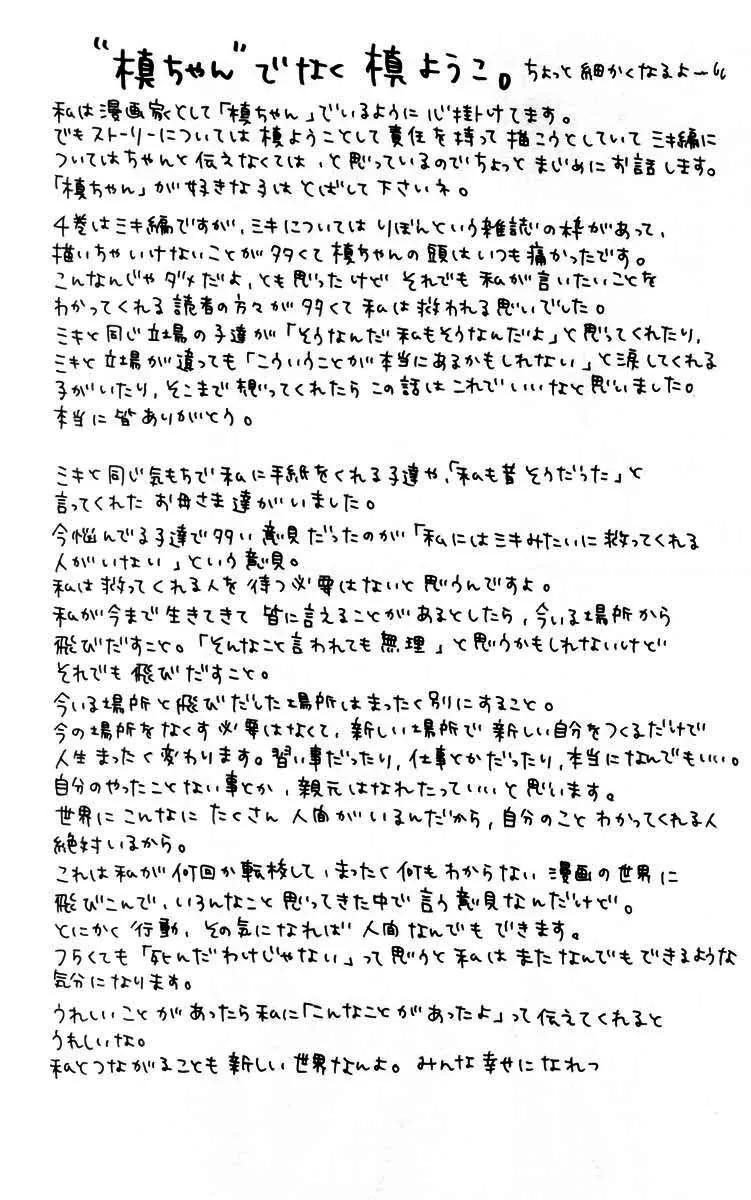 “槙ちゃん”でなく 槙ようこ。ちょっと細かくなるよー
私は漫画家として「槙ちゃん」でいるように心掛けてます。
でもストーリーについては 槙ようことして責任を持って描こうとしていて ミキ編に
ついてはちゃんと伝えなくては、と思っているのでちょっとまじめにお話します。
「槙ちゃん」が好きな子はとばして下さいネ。
4巻はミキ編ですが、ミキについては りぼんという雑誌の枠があって、
描いちゃいけないことが多くて槙ちゃんの頭はいつも痛かったです。
こんなんじゃダメだよ、とも思ったけど それでも私が言いたいことを
わかってくれる読者の方々が多くて私は救われる思いでした。
ミキと同じ立場の子達が「そうなんだ私もそうなんだよ」と思ってくれたり、
ミキと立場が違っても「こういうことが本当にあるかもしれない」と涙してくれる
子がいたり、そこまで想ってくれたら この話はこれでいいなと思いました。
本当に皆ありがとう。
ミキと同じ気もちで私に手紙をくれる子達や、「私も昔そうだった」と
言ってくれた お母さま達がいました。
今悩んでる子達で多い意見だったのが「私にはミキみたいに救ってくれる
人がいない」という意見。
私は救ってくれる人を待つ必要はないと思うんですよ。
私が今まで生きてきて 皆に言えることがあるとしたら、今いる場所から
飛びだすこと。「そんなこと言われても無理」と思うかもしれないけど
それでも飛びだすこと。
今いる場所と飛びだした場所はまったく別にすること。
今の場所をなくす必要はなくて、新しい場所で新しい自分をつくるだけで
人生まったく変わります。習い事だったり、仕事とかだったり、本当になんでもいい。
自分のやったことない事とか、親元はなれたっていいと思います。
世界にこんなに たくさん 人間がいるんだから、自分のことわかってくれる人
絶対いるから。
これは私が何回か転校して、まったく何もわからない漫画の世界に
飛びこんで、いろんなこと思ってきた中で言う意見なんだけど。
とにかく行動、その気になれば 人間なんでもできます。
つらくても「死んだわけじゃない」って思うと私はまたなんでもできるような
気分になります。
うれしいことがあったら私に「こんなことがあったよ」って伝えてくれると
うれしいな。
私とつながることも新しい世界なんよ。みんな幸せになれっ